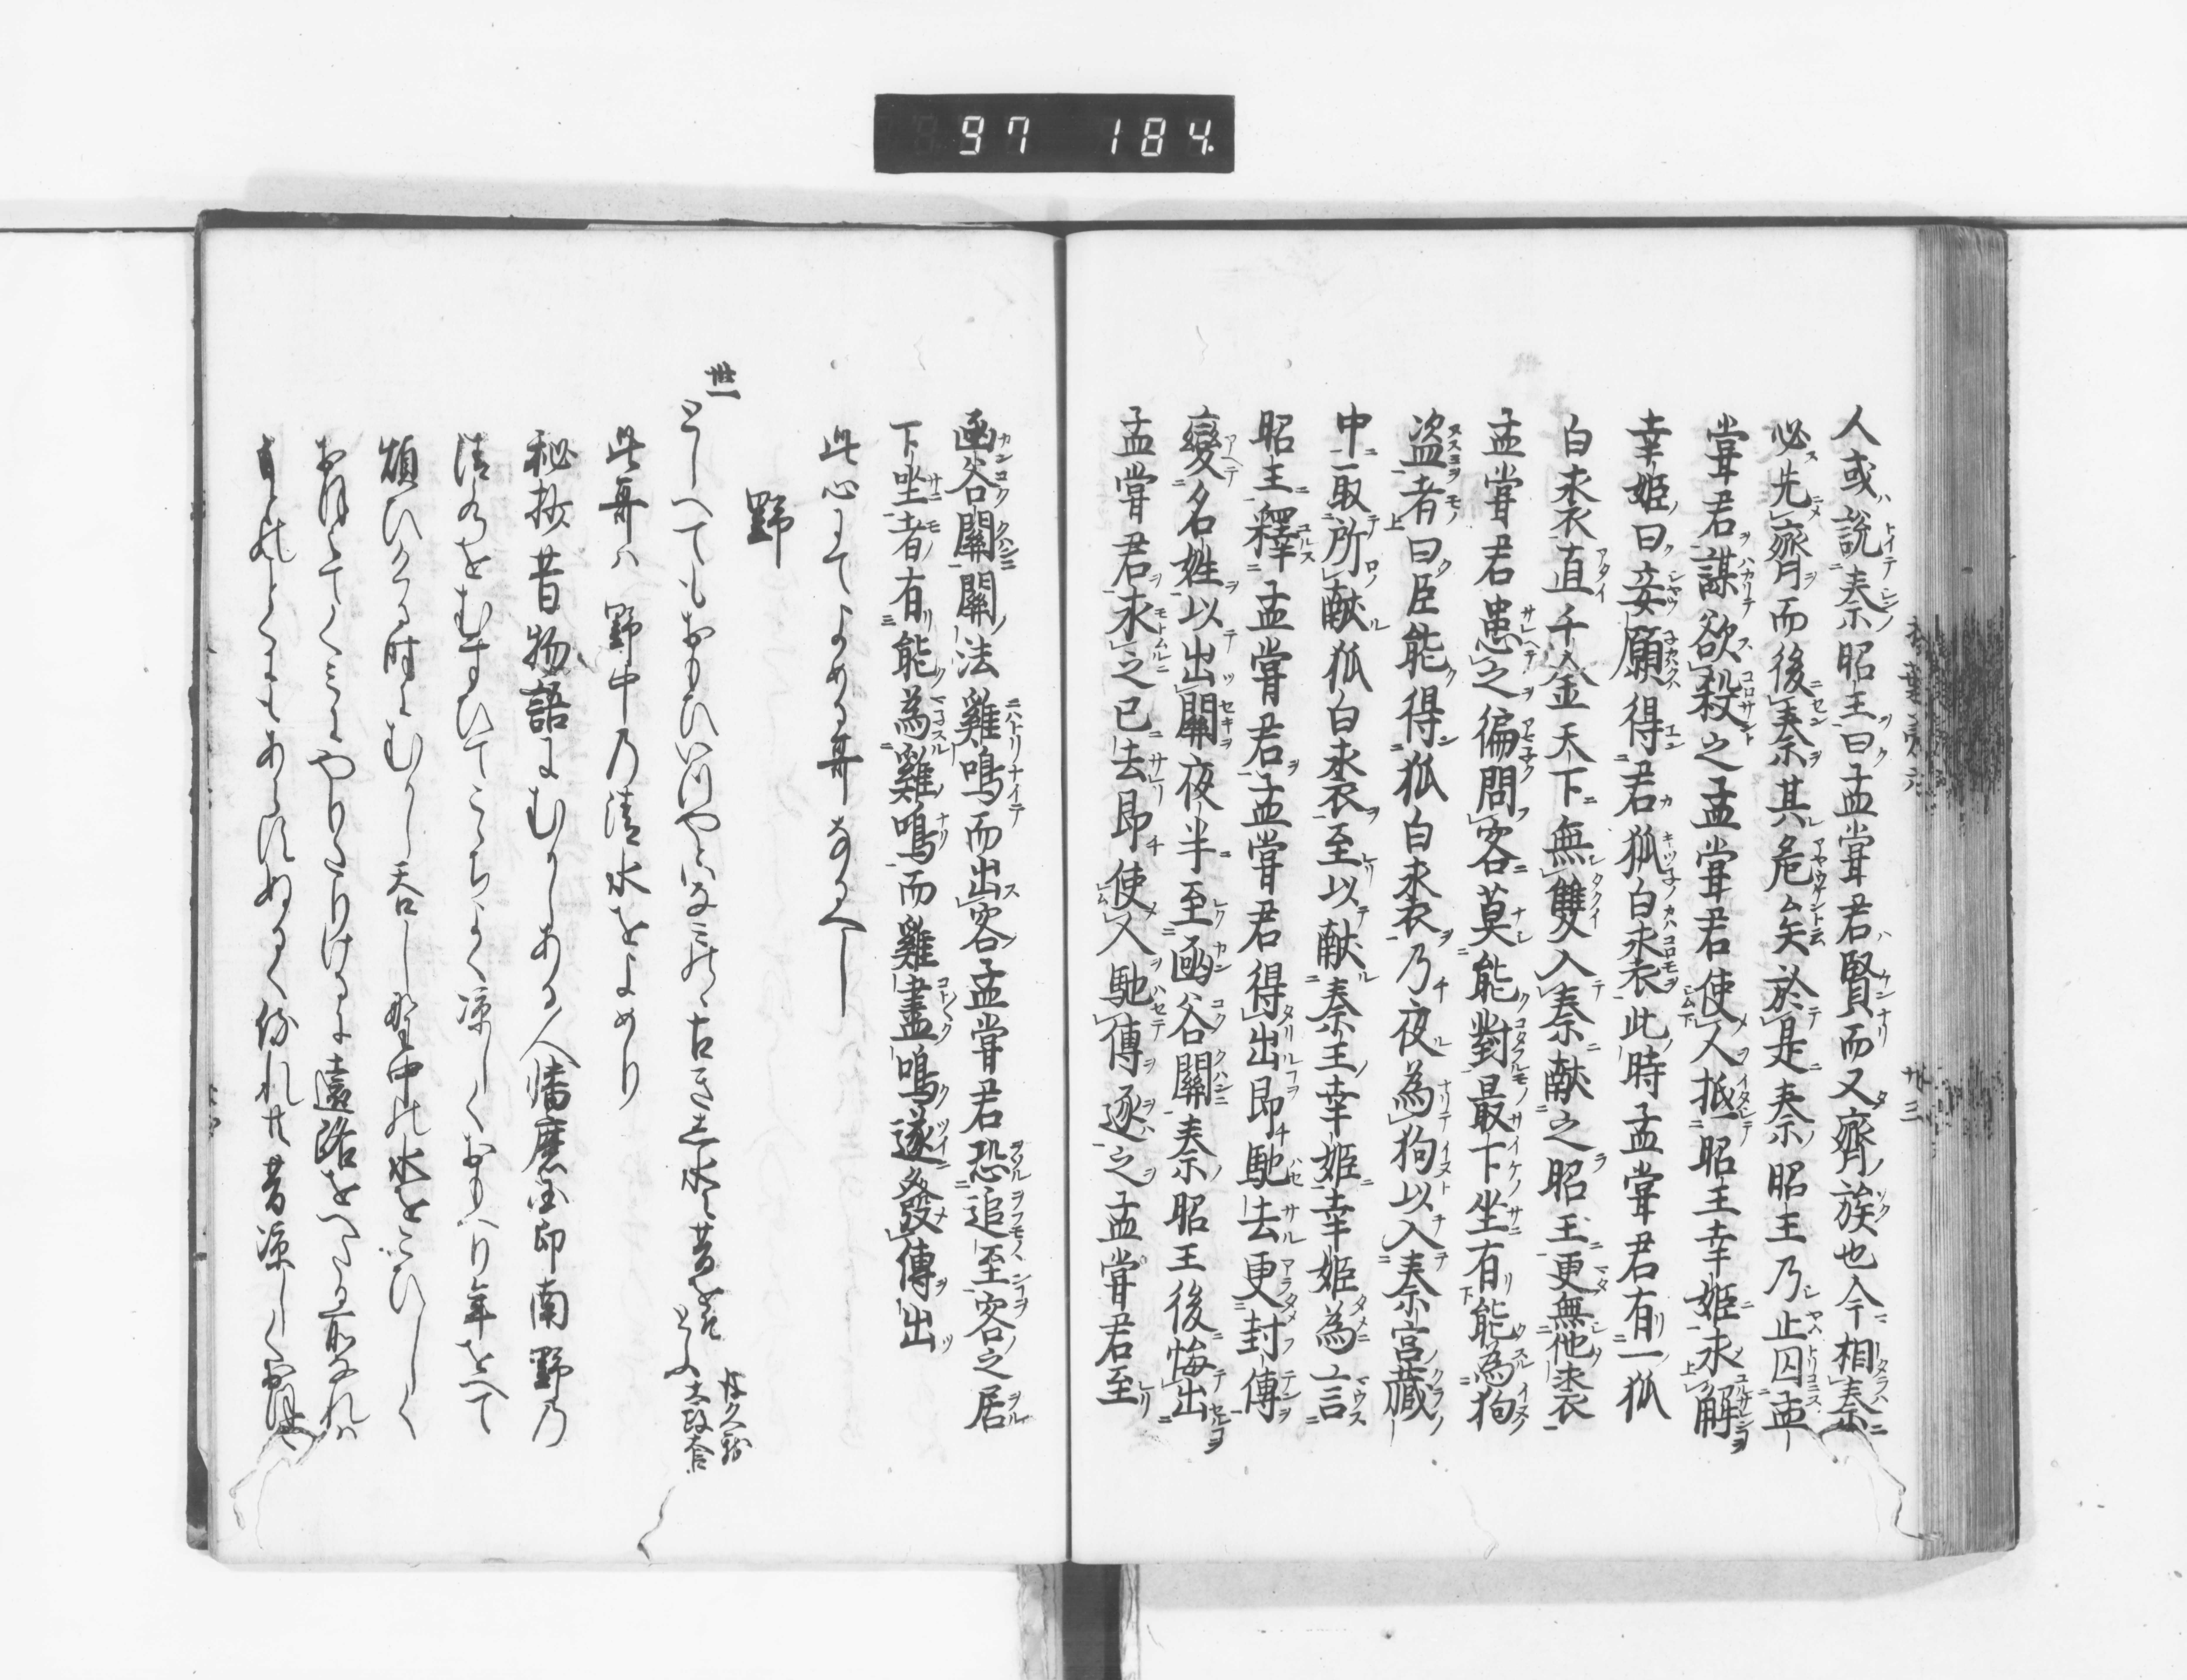 97 184.
人或説秦昭王曰孟甞君賢而又齊族也今相秦
必先齊而後秦其危矣於是秦昭王乃止囚孟
甞君謀欲殺之孟甞君使人抵昭王幸姫求解
幸姫曰妾願得君狐白裘此時孟甞君有一狐
白裘直千金天下無雙入秦献之昭王更無他裘
孟甞君患之徧問客莫能對最下坐有能為狗
盗者曰臣能得狐白裘乃夜為狗以入秦宮蔵
中取所献狐白裘至以献秦王幸姫幸姫為言
昭王釋孟甞君孟甞君得出即馳去更封傳
變名姓以出關夜半至函谷關秦昭王後悔出
孟甞君求之已去即使人馳傳逐之孟甞君至
函谷關關法雞鳴而出客孟甞君恐追至客之居
下坐者有能為雞鳴而雞盡鳴遂發傳出
此心にてよめる哥なるへし
野
丗一
此哥ハ野中乃清水をよめり
秘抄昔物語にむかしある人播磨国印南野乃
清水をむすひてこゝちよく凉しくおもへり年をへて
煩ひける時にむかし呑し野中の水をこひしく
おほえてくみにやりたりけるに遠路をへたる前なれハ